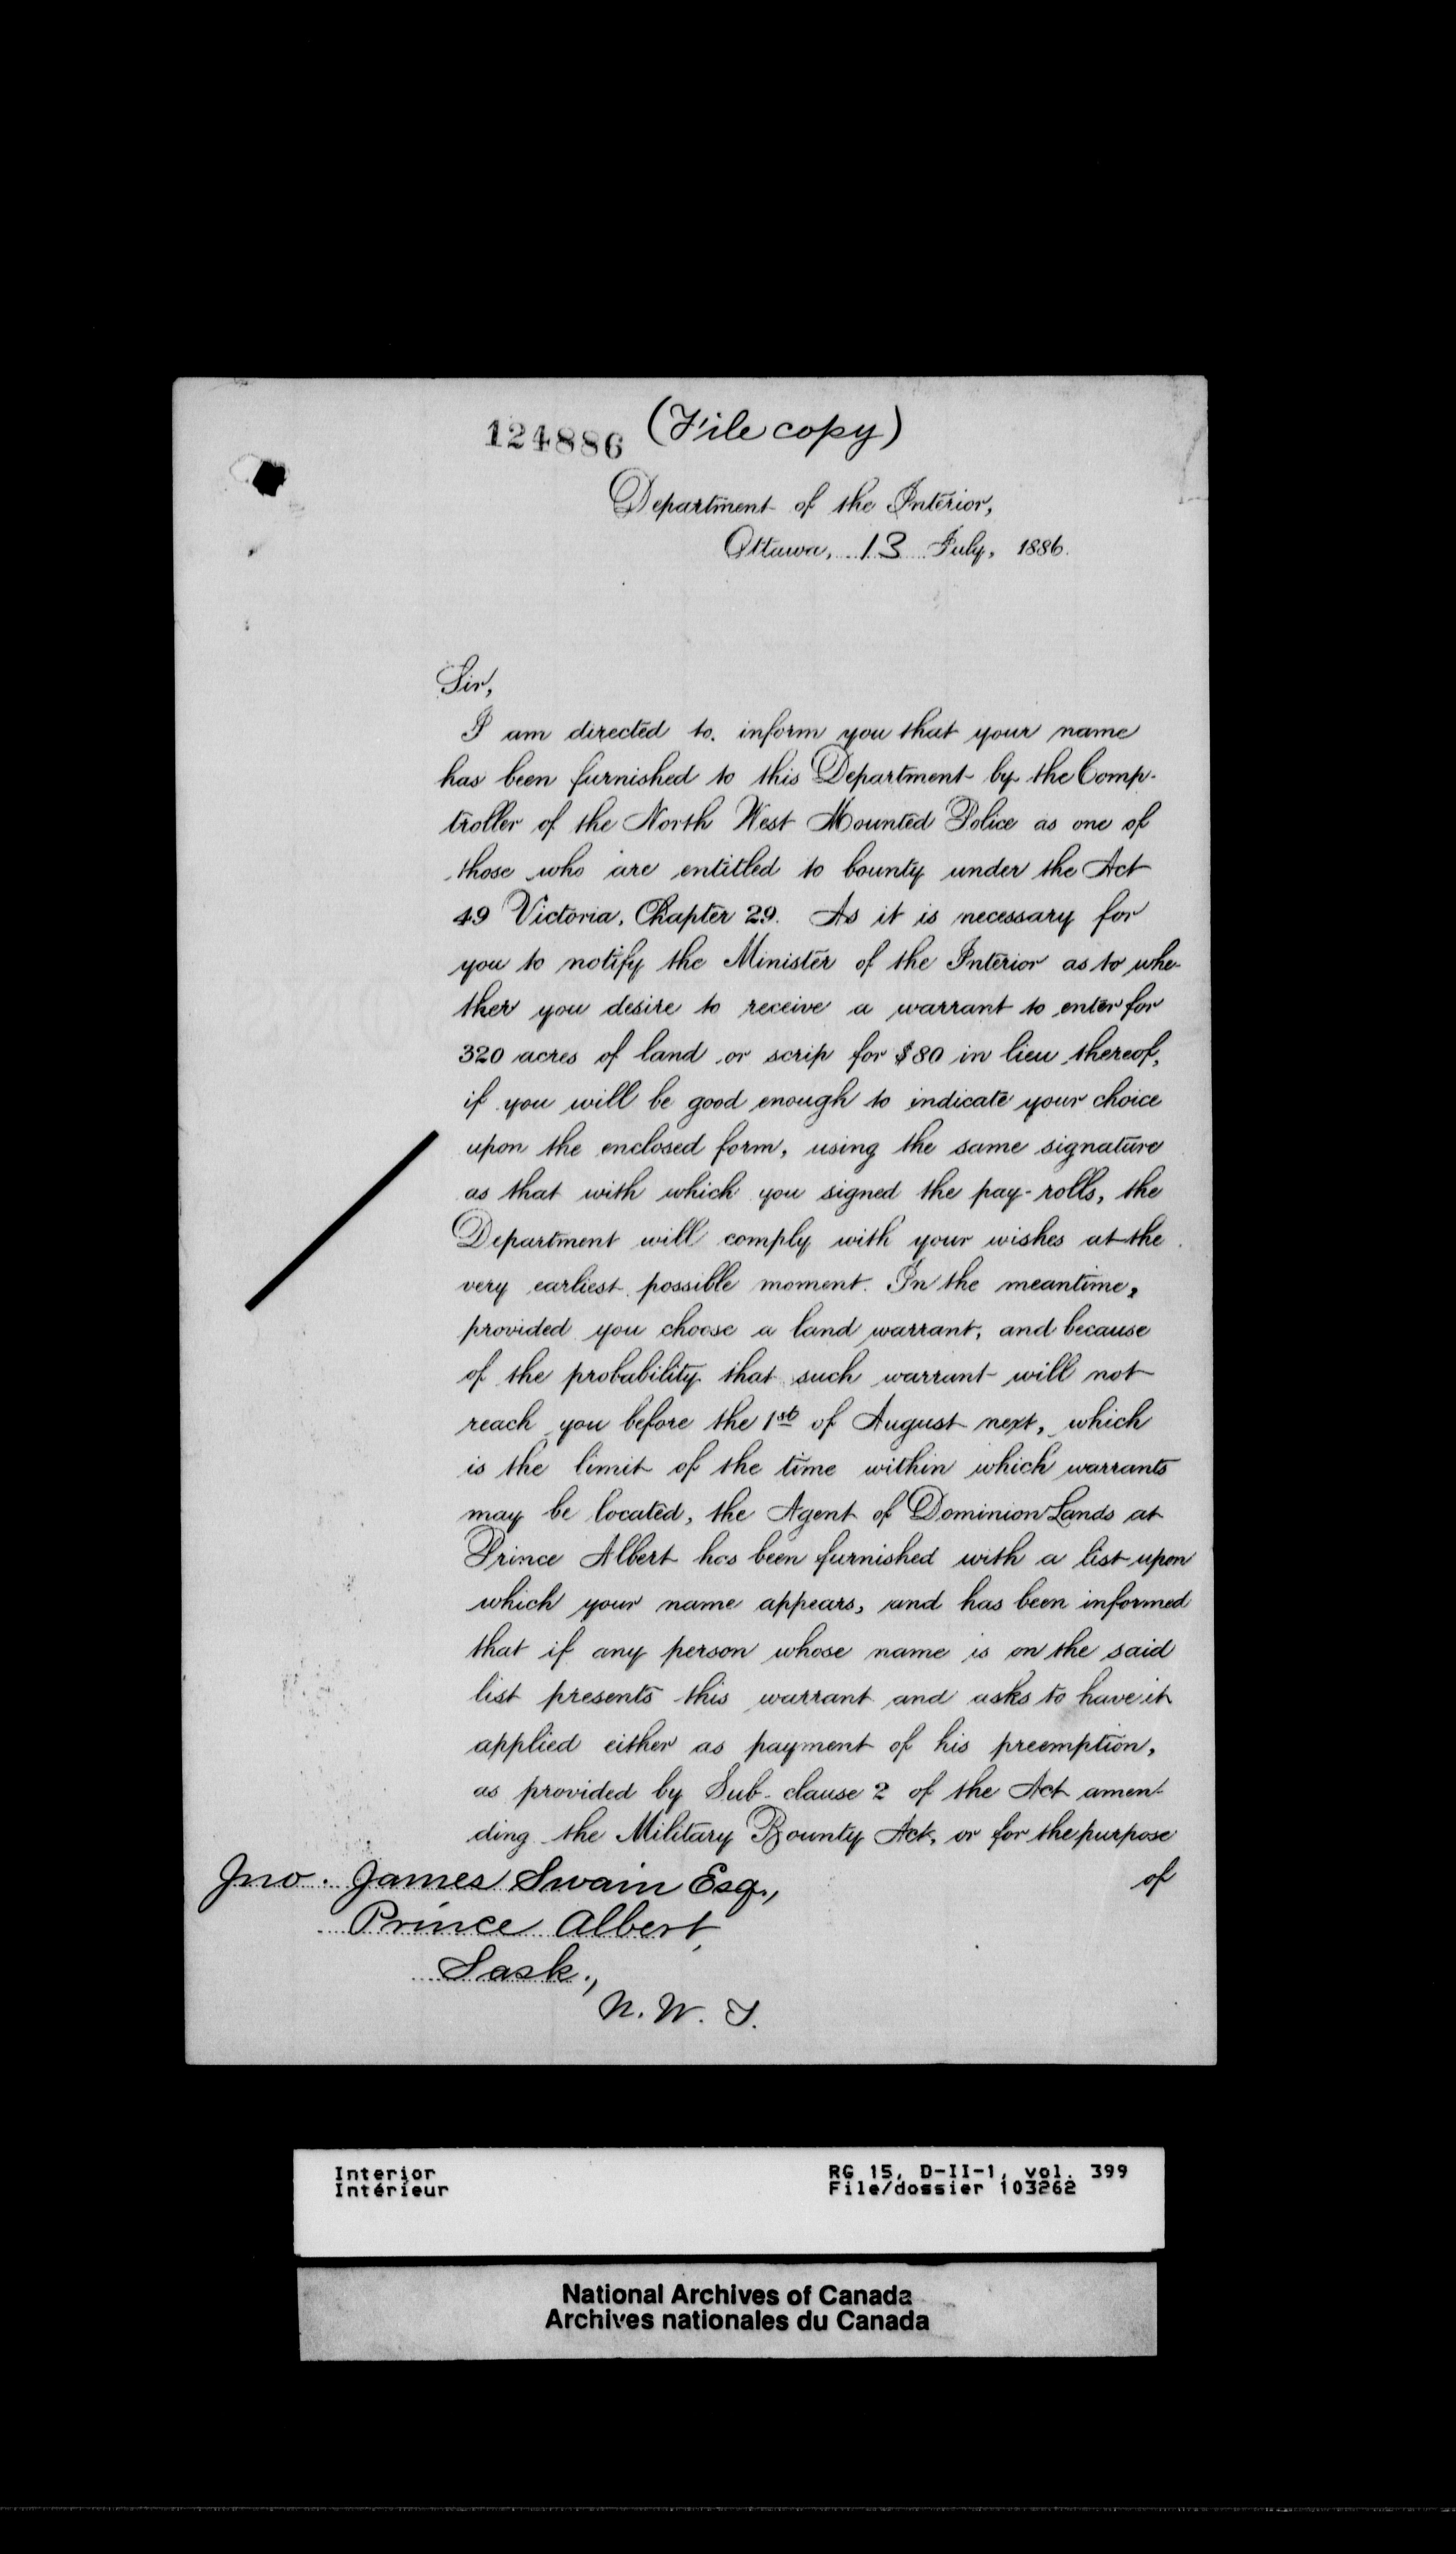 124886 (File copy)
Department of the Interior,
Ottawa, 13 July, 1886.
Sir,
I am directed to inform you that your name
has been furnished to this Department by the Comp-
troller of the North West Mounted Police as one of
those who are entitled to bounty under the Act
49 Victoria, Chapter 29. As it is necessary for
you to notify the Minister of the Interior as to whe-
ther you desire to receive a warrant to enter for
320 acres of land or scrip for $80 in lieu thereof,
if you will be good enough to indicate your choice
upon the enclosed form, using the same signature
as that with which you signed the pay-rolls, the
Department will comply with your wishes at the
very earliest possible moment. In the meantime,
provided you choose a land warrant, and because
of the probability that such warrant will not
reach you before the 1st of August next, which
is the limit of the time within which warrants
may be located, the Agent of Dominion Lands at
Prince Albert has been furnished with a list upon
which your name appears, and has been informed
that if any person whose name is on the said
list presents this warrant and asks to have it
applied either as payment of his preemption,
as provided by Sub-clause 2 of the Act amen-
ding the Military Bounty Act, or for the purpose
of
Jno. James Swain Esq.,
Prince Albert,
Sask.,
N.W.T.
Interior
Intérieur
RG 15, D-II-1, vol. 399
File/dossier 103262
National Archives of Canada
Archives nationales du Canada